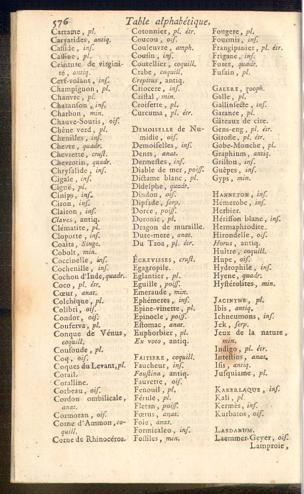 576 Table alphabétique.
Cartame, pl.
Caryatides, antiq.
Casside, ins.
Cassine, pl.
Ceinture de virgini-
té, antiq.
Cerf-volant, ins.
Champignon, pl.
Chanvre, pl.
Charanson, ins.
Charbon, min.
Chauve-Souris, ois.
Chêne verd, pl.
Chenilles, ins.
Chevre, quadr.
Chevrette, crust.
Chevrotin, quadr.
Chrysalide, ins.
Cigale, ins.
Cigne, pl.
Cinips, ins.
Ciron, ins.
Clairon, ins.
Claves, antiq.
Clématite, pl.
Cloporte, ins.
Coaita, Singe.
Cobolt, min.
Coccinelle, ins.
Cochenille, ins.
Cochon d'Inde, quadr.
Coco, pl. étr.
Cœur, anat.
Colchique, pl.
Colibri, ois.
Condor, ois.
Conferva, pl.
Conque de Vénus,
coquill.
Consoude, pl.
Coq, ois.
Coques du Levant, pl.
Corail.
Coralline.
Corbeau, ois.
Cordon ombilicale,
anat.
Cormoran, ois.
Corne d'Ammon, co-
quill.
Corne de Rhinocéros.
Cotonnier, pl. étr.
Coucou, ois.
Couleuvre, amph.
Cousin, ins.
Coutellier, coquill.
Crabe, coquill.
Crepitus, antiq.
Criocere, ins.
Cristal, min.
Croisette, pl.
Curcuma, pl. étr.
Demoiselle de Nu-
midie, ois.
Demoiselles, ins.
Dents, anat.
Dermestes, ins.
Diable de mer, poiss.
Dictame blanc, pl.
Didelphe, quadr.
Dindon, ois.
Dipsade, serp.
Dorée, poiss.
Doronic, pl.
Dragon de muraille.
Dure-mere, anat.
Du Troa, pl. étr.
Écrevisses, crust.
Egagropile.
Eglantier, pl.
Eguille, poiss.
Emeraude, min.
Ephémeres, ins.
Epine-vinette, pl.
Epinoche, poiss.
Estomac, anat.
Euphorbier, pl.
Ex voto, antiq.
Faitiere, coquill.
Faucheur, ins.
Faustina, antiq.
Fauvette, ois.
Fenouil, pl.
Férule, pl.
Fœtus, anat.
Foie, anat.
Formicaleo, ins.
Fossiles, min.
Fougere, pl.
Fourmis, ins.
Frangipanier, pl. étr.
Frigane, ins.
Furet, quadr.
Fusain, pl.
Galere, zooph.
Galle, pl.
Gallinsecte, ins.
Garance, pl.
Gâteaux de cire.
Gens-eng, pl. étr.
Girofle, pl. étr.
Gobe-Mouche, pl.
Graphium, antiq.
Grillon, ins.
Guêpes, ins.
Gyps, min.
Hanneton, ins.
Hémerobe, ins.
Herbier.
Hérisson blanc, ins.
Hermaphrodite.
Hirondelle, ois.
Horus, antiq.
Huître, coquill.
Hupe, ois.
Hydrophile, ins.
Hyene, quadr.
Hystérolites, min.
Jacinthe, pl.
Ibis, antiq.
Ichneumons, ins.
Jek, serp.
Jeux de la nature,
min.
Indigo, pl. étr.
Intestins, anat.
Isis, antiq.
Jusquiame, pl.
Kakerlaque, ins.
Kali, pl.
Kermès, ins.
Kurbatos, ois.
Labdanum.
Laemmer-Geyer, ois.
Lamproie,